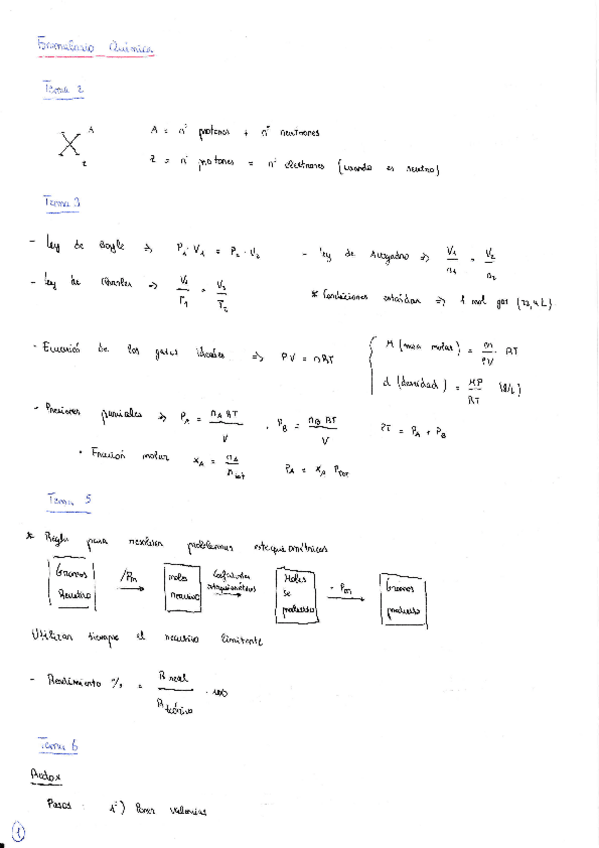 Formulario Química
Tema 2
X A Z
A = nº protones + nº neutrones
Z = nº protones = nº electrones (cuando es neutro)
Tema 3
- Ley de Boyle => P1 · V1 = P2 · V2
- Ley de Avogadro => V1/n1 = V2/n2
- Ley de Charles => V1/T1 = V2/T2
* Condiciones estándar => 1 mol gas (22,4 L)
- Ecuación de los gases ideales => PV = nRT
M (masa molar) = m/PV · RT
d (densidad) = MP/RT (g/L)
- Presiones parciales => PA = nA RT/V , PB = nB RT/V PT = PA + PB
• Fracción molar xA = nA/ntot PA = xA PTOT
Tema 5
* Regla para resolver problemas estequiométricos
Gramos Reactivo /Pm moles reactivo Coeficientes estequiométricos Moles de producto · Pm Gramos producto
Utilizar siempre el reactivo limitante
- Rendimiento % = R real/R teórico · 100
Tema 6
Redox
Pasos : 1º) Poner valencias
1